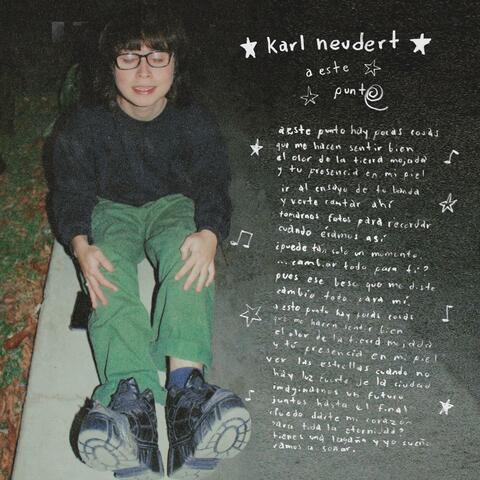 karl neudert
a este
punto
a este punto hay pocas cosas
que me hacen sentir bien
el olor de la tierra mojada
y tu presencia en mi piel
ir al ensayo de tu banda
y verte cantar ahí
tomarnos fotos para recordar
cuándo éramos así
¿puede tan solo un momento
cambiar todo para ti?
pues ese beso que me diste
cambió todo para mí.
a este punto hay pocas cosas
que me hacen sentir bien
el olor de la tierra mojada
y tú presencia en mi piel
ver las estrellas cuando no
hay luz fuerte de la ciudad
imaginarnos un futuro
juntos hasta el final
¿Puedo darte mi corazón
para toda la eternidad?
tienes una lagaña y yo sueño
vamos a soñar.